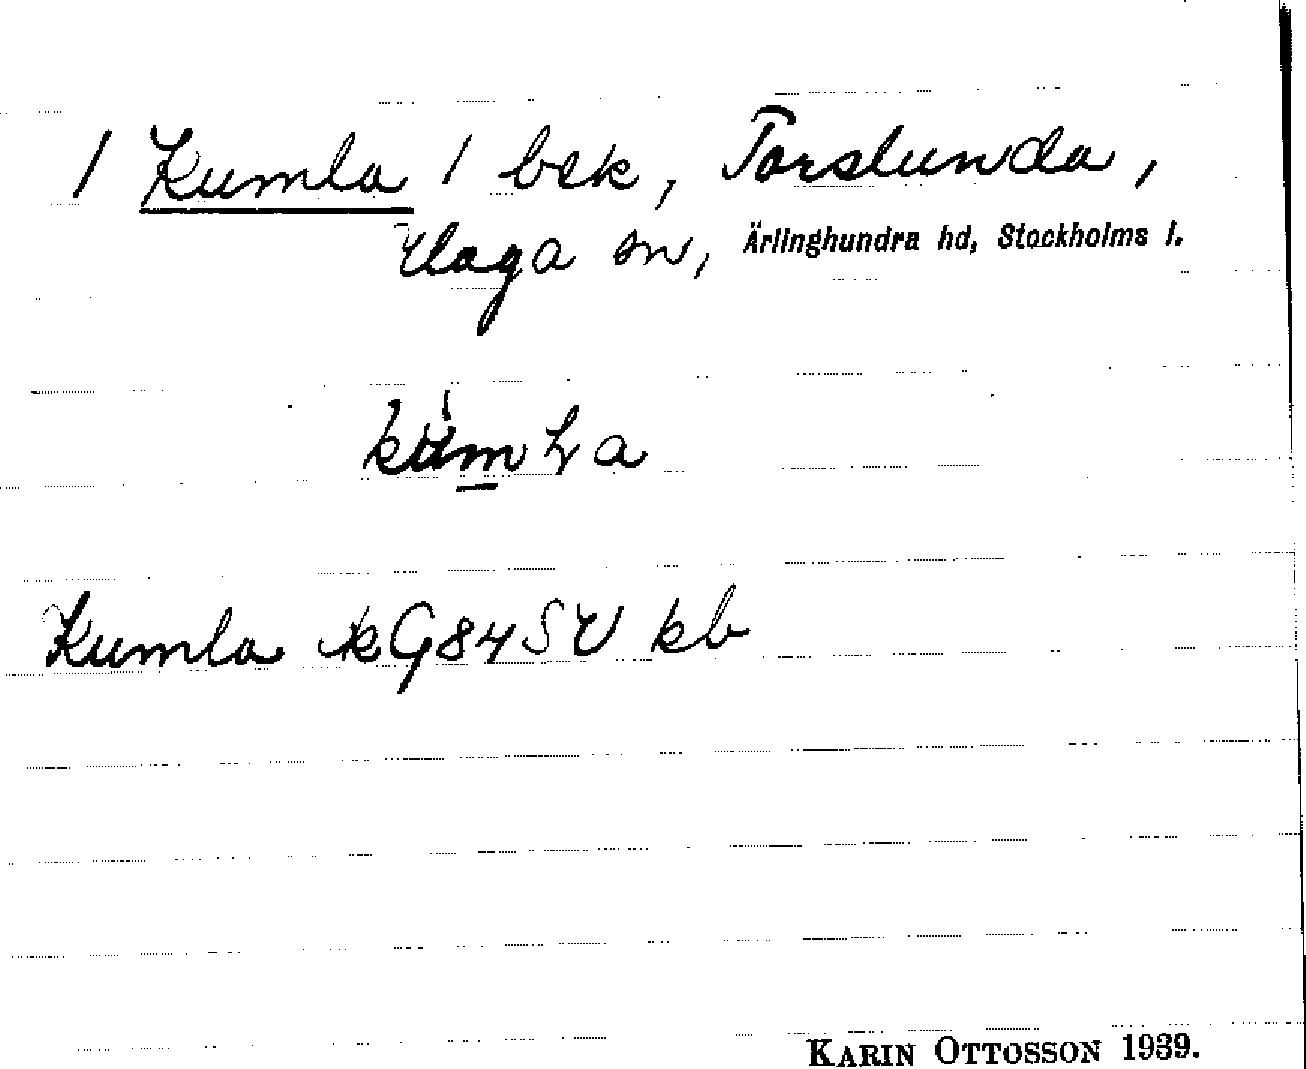 / Kumla / bsk, Torslunda,
Haga sn, Ärlinghundra hd, Stockholms l.
Kumla kG84SV kb
KARIN OTTOSSON 1939.